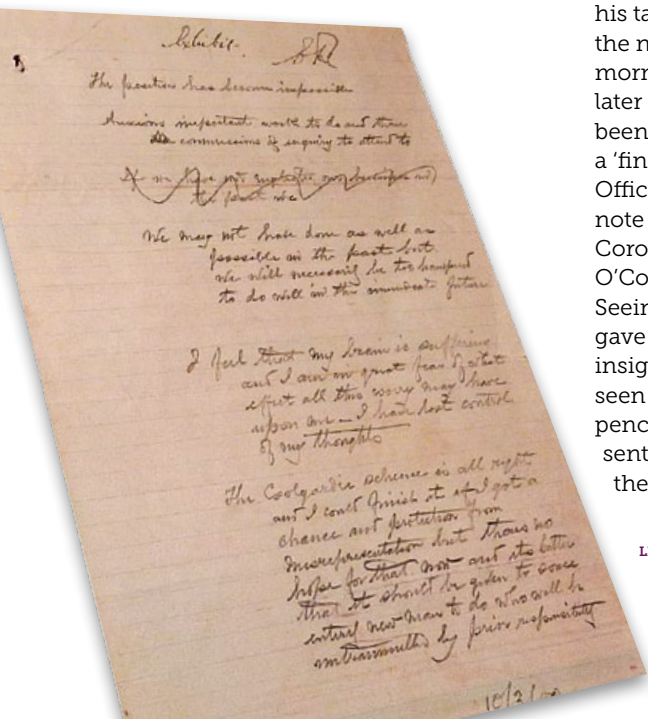 Exhibit.
The position has become impossible
Anxious important work to do and three
commissions of enquiry to attend to
We may not have done as well as
possible in the past but
we will necessarily be too hampered
to do well in the immediate future
I feel that my brain is suffering
and I am in great fear of what
effect all this worry may have
upon me – I have lost control
of my thoughts
The Coolgardie scheme is all right
and I could finish it if I got a
chance and protection from
misrepresentation but there's no
hope for that now and it's better
that it should be given to some
entirely new man to do who will be
untrammelled by prior responsibility
10/3/02
his ta
the n
morn
later
been
a 'fin
Offic
note
Coro
O'Co
Seein
gave
insig
seen
penc
sent
the